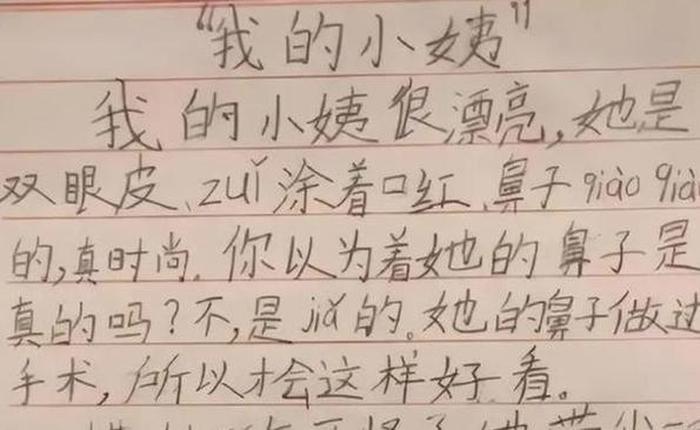 "我的小姨"
我的小姨很漂亮,她是
双眼皮、zuǐ涂着口红、鼻子qiào qià
的,真时尚.你以为着她的鼻子是
真的吗?不,是jiǎ的。她的鼻子做过
手术,所以才会这样好看。